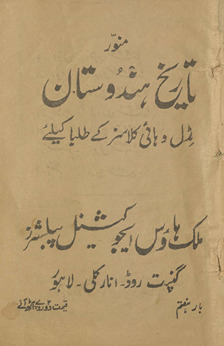 منوّر
تاریخ ہندوستان
مڈل و ہائی کلاسز کے طلبا کیلئے
ملک ہاؤس ایجوکیشنل پبلشرز
گنپت روڈ۔ انارکلی۔ لاہور
قیمت دو روپے
بار ہفتم